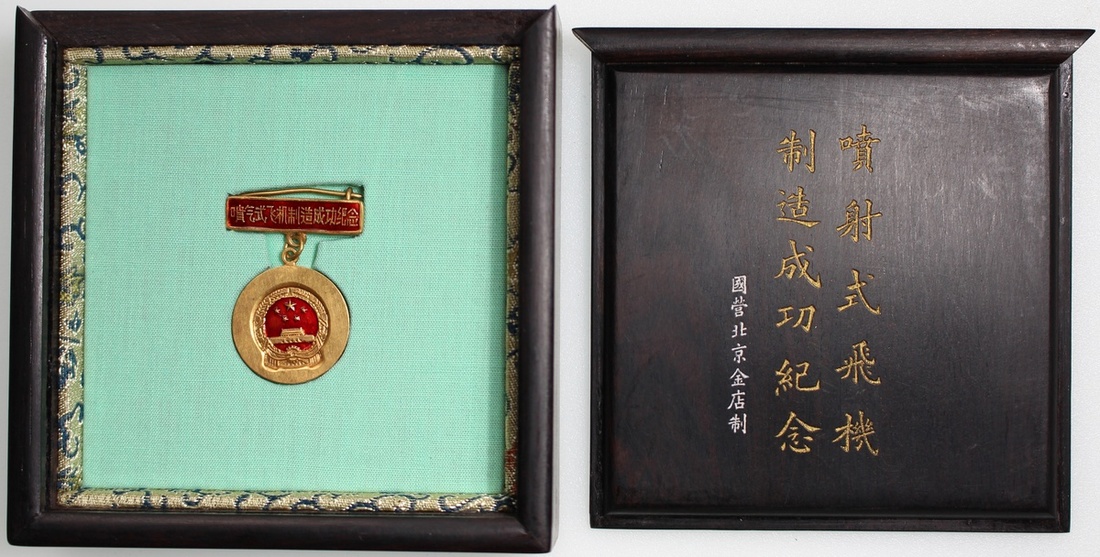 喷气式飞机制造成功纪念
噴射式飛機
制造成功紀念
國营北京金店制